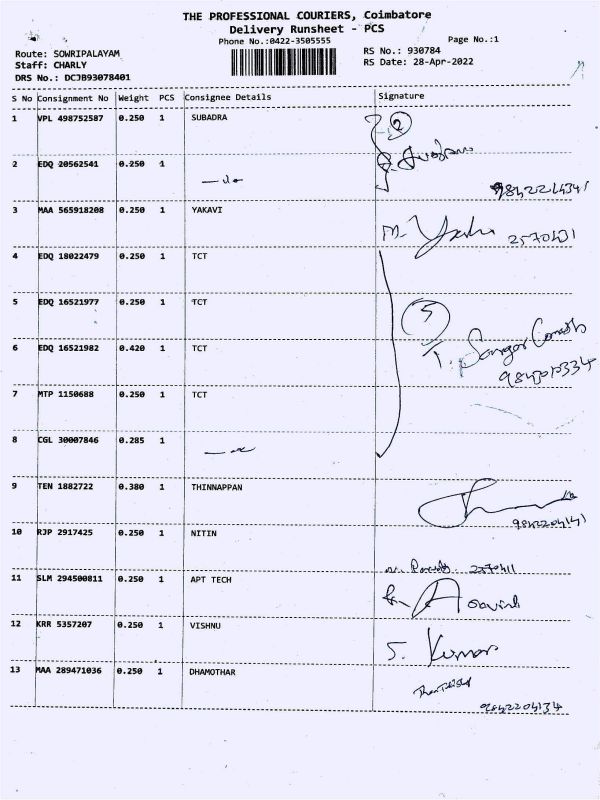 THE PROFESSIONAL COURIERS, Coimbatore
Delivery Runsheet - PCS
Phone No.:0422-3505555
Page No.:1
Route: SOWRIPALAYAM
Staff: CHARLY
DRS No.: DCJB93078401
RS No.: 930784
RS Date: 28-Apr-2022
S No Consignment No Weight PCS Consignee Details Signature
1 VPL 498752587 0.250 1 SUBADRA
2
2 EDQ 20562541 0.250 1
3 MAA 565918208 0.250 1 YAKAVI
M.
2570431
4 EDQ 18022479 0.250 1 TCT
5 EDQ 16521977 0.250 1 TCT
5
6 EDQ 16521982 0.420 1 TCT
7 MTP 1150688 0.250 1 TCT
8 CGL 30007846 0.285 1
9 TEN 1882722 0.380 1 THINNAPPAN
10 RJP 2917425 0.250 1 NITIN
11 SLM 294500811 0.250 1 APT TECH
12 KRR 5357207 0.250 1 VISHNU
S. Kumar
13 MAA 289471036 0.250 1 DHAMOTHAR
9842204134